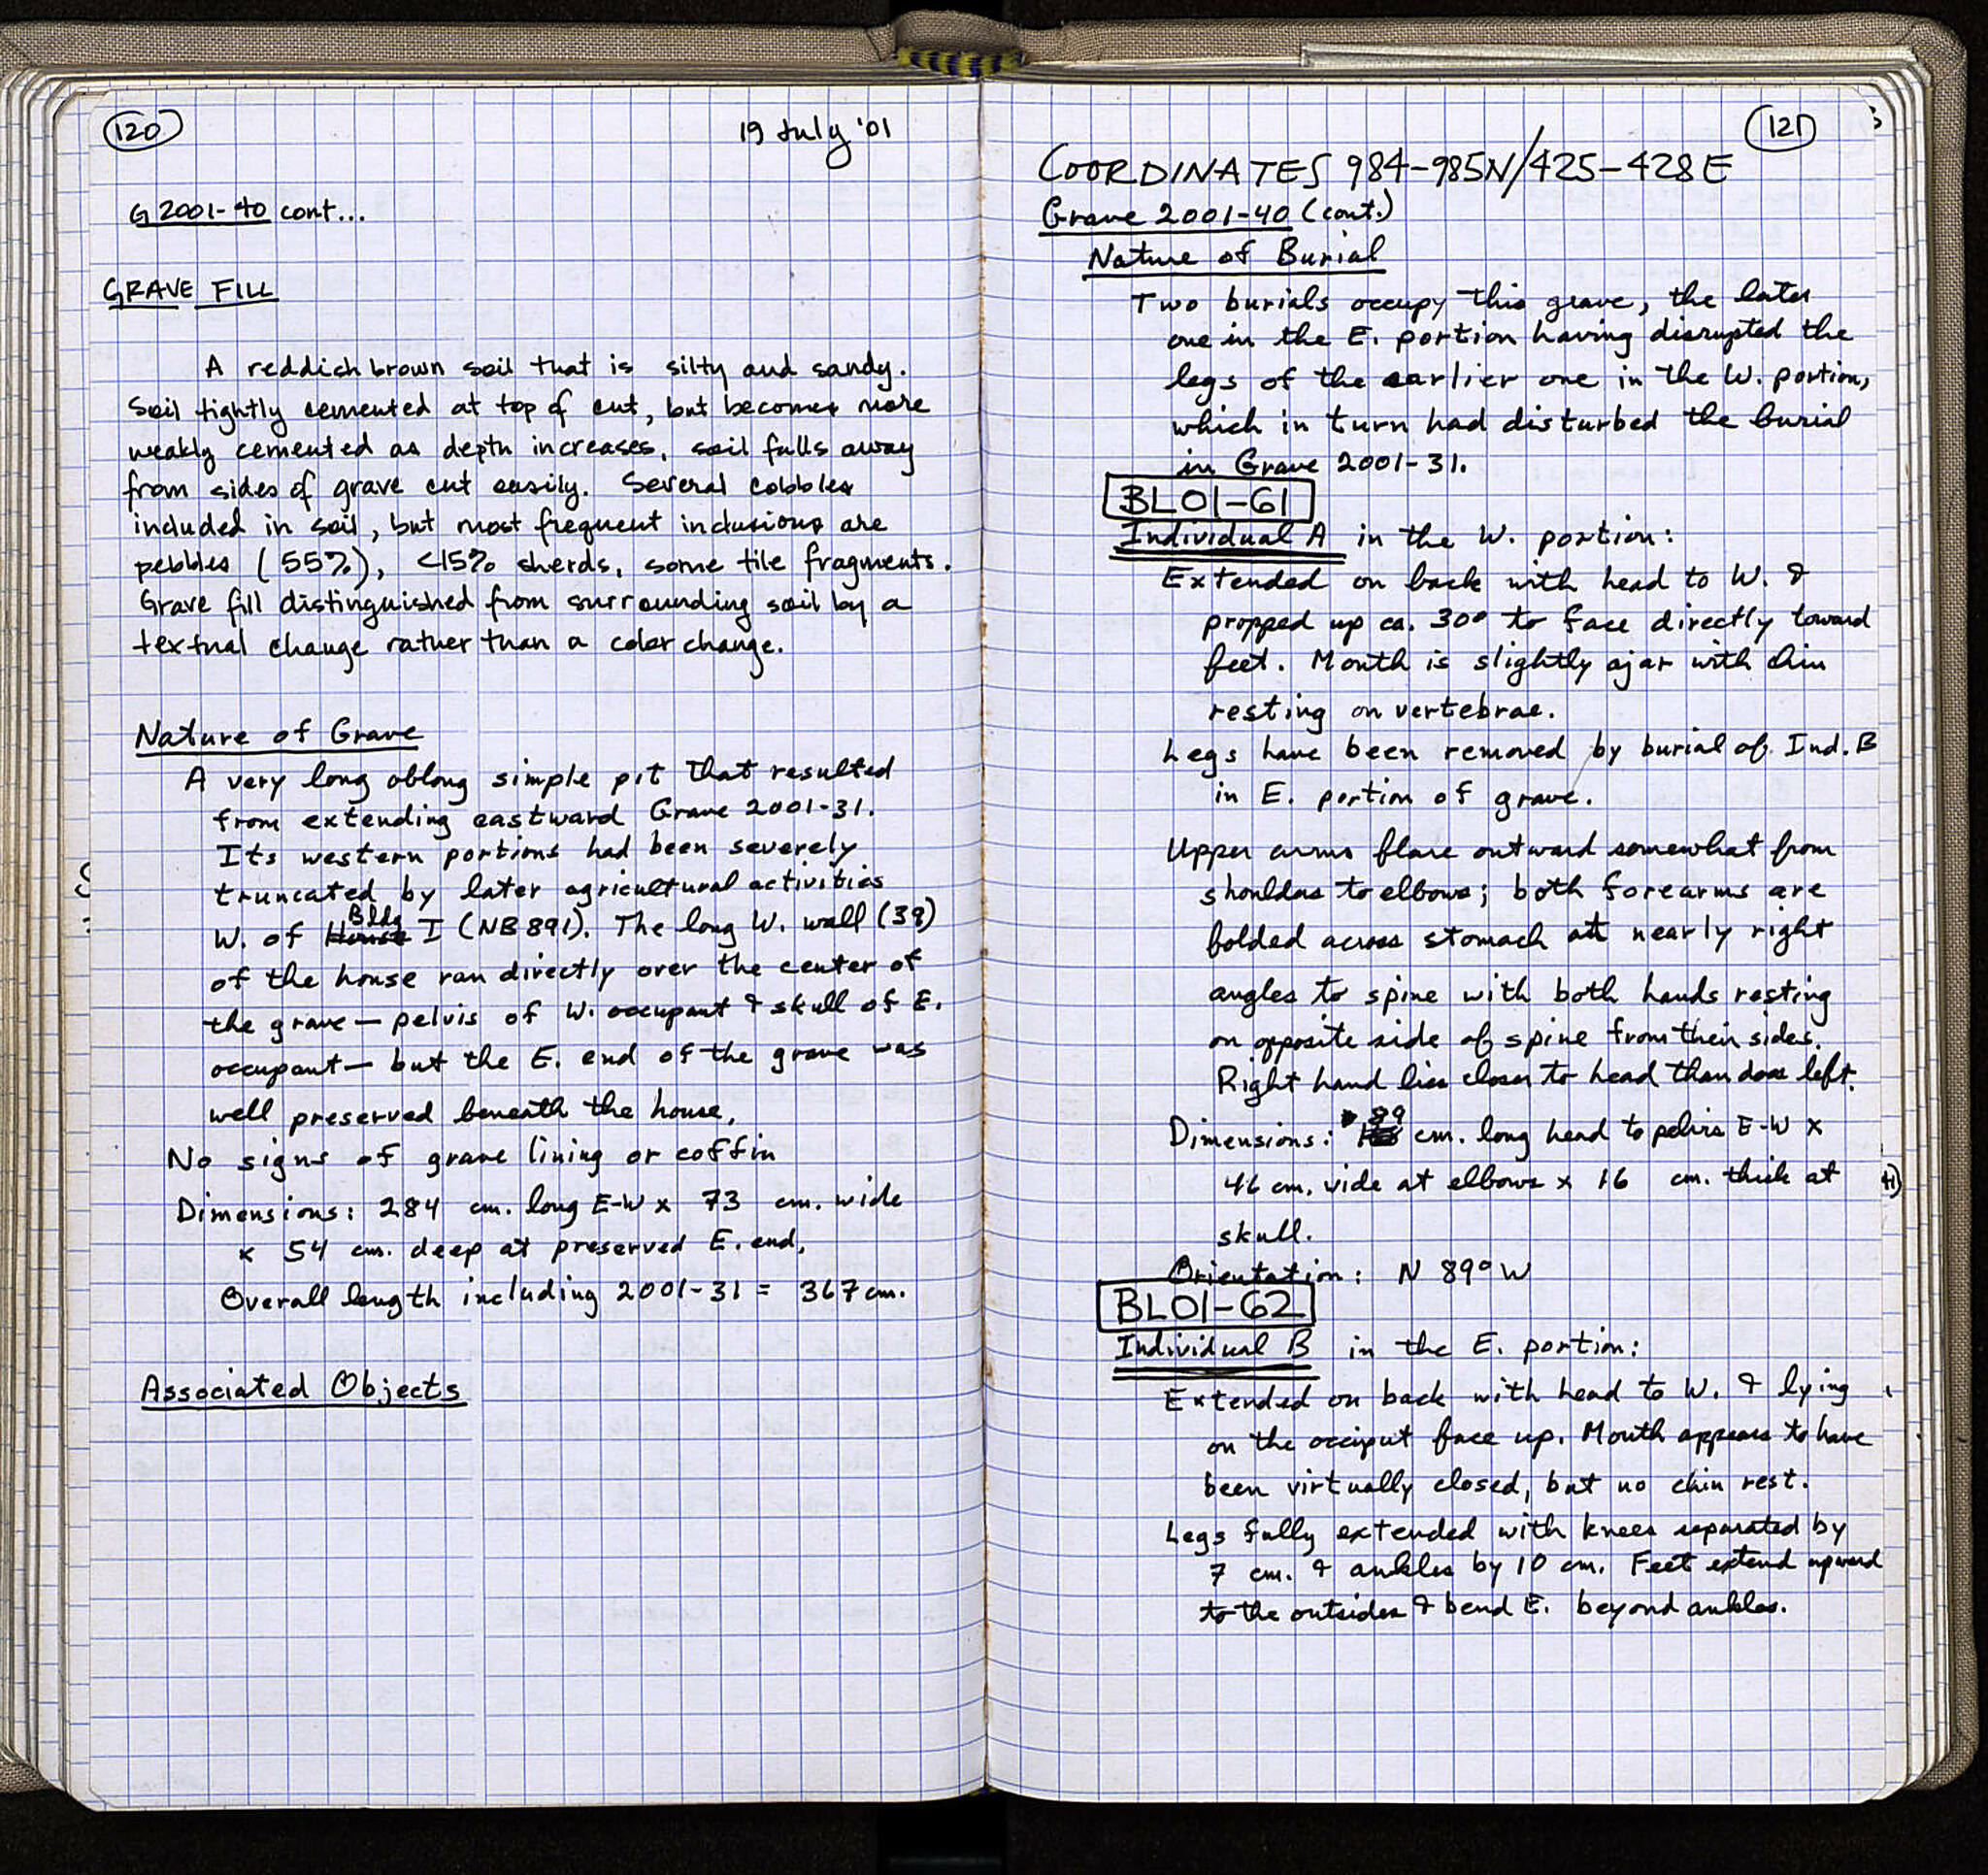 120
19 July '01
G 2001-40 cont...
GRAVE FILL
A reddish brown soil that is silty and sandy.
Soil tightly cemented at top of cut, but becomes more
weakly cemented as depth increases, soil falls away
from sides of grave cut easily. Several cobbles
included in soil, but most frequent inclusions are
pebbles (55%), <15% sherds, some tile fragments.
Grave fill distinguished from surrounding soil by a
textual change rather than a color change.
Nature of Grave
A very long oblong simple pit that resulted
from extending eastward Grave 2001-31.
Its western portions had been severely
truncated by later agricultural activities
W. of House Bldg I (NB 891). The long W. wall (39)
of the house ran directly over the center of
the grave — pelvis of W. occupant & skull of E.
occupant — but the E. end of the grave was
well preserved beneath the house.
No signs of grave lining or coffin
Dimensions: 284 cm. long E-W x 73 cm. wide
x 54 cm. deep at preserved E. end.
Overall length including 2001-31 = 367 cm.
Associated Objects
121
COORDINATES 984-985N/425-428E
Grave 2001-40 (cont.)
Nature of Burial
Two burials occupy this grave, the later
one in the E. portion having disrupted the
legs of the earlier one in the W. portion,
which in turn had disturbed the burial
in Grave 2001-31.
BL01-61
Individual A in the W. portion:
Extended on back with head to W. &
propped up ca. 30° to face directly toward
feet. Mouth is slightly ajar with chin
resting on vertebrae.
Legs have been removed by burial of Ind. B
in E. portion of grave.
Upper arms flare outward somewhat from
shoulders to elbows; both forearms are
folded across stomach at nearly right
angles to spine with both hands resting
on opposite side of spine from their sides.
Right hand lies closer to head than does left.
Dimensions: 89 cm. long head to pelvis E-W x
46 cm. wide at elbows x 16 cm. thick at
skull.
Orientation: N 89° W
BL01-62
Individual B in the E. portion:
Extended on back with head to W. & lying
on the occiput face up. Mouth appears to have
been virtually closed, but no chin rest.
Legs fully extended with knees separated by
7 cm. & ankles by 10 cm. Feet extend upward
to the outsides & bend E. beyond ankles.